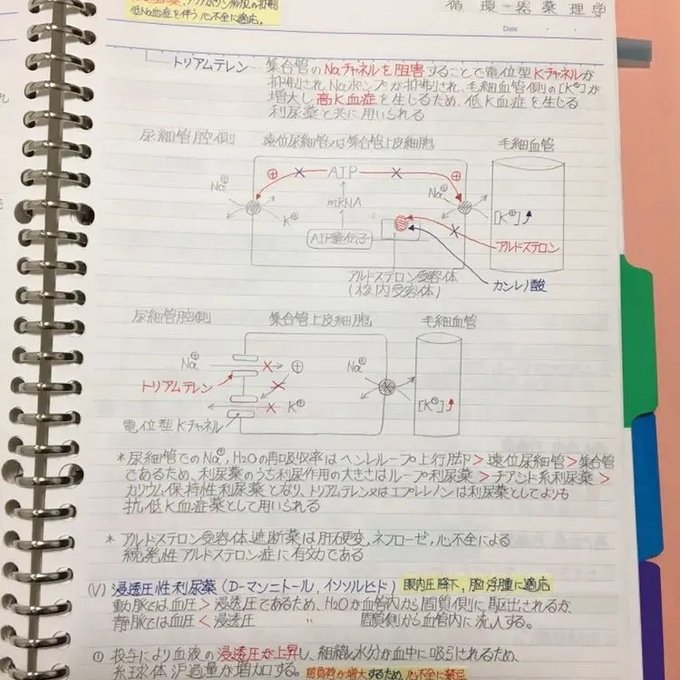 循環器薬理学
Date
低Na血症を伴う心不全に適応。
トリアムテレン 集合管のNaチャネルを阻害することで電位型Kチャネルが
抑制されNaポンプが抑制され、毛細血管側の[K⊕]が
増大し高K血症を生じるため、低K血症を生じる
利尿薬と共に用いられる
尿細管腔側 遠位尿細管又は集合管上皮細胞 毛細血管
⊕ × AIP × ⊕
Na⊕ Na⊕
mRNA
K⊕ K⊕ [K⊕]
AIP遺伝子
アルドステロン
アルドステロン受容体
(核内受容体)
カンレノ酸
尿細管腔側 集合管上皮細胞 毛細血管
Na⊕ ⊕ Na⊕
トリアムテレン
K⊕ K⊕ [K⊕]
電位型Kチャネル
*尿細管でのNa⊕,H2Oの再吸収率はヘンレループ上行脚>遠位尿細管>集合管
であるため、利尿薬のうち利尿作用の大きさはループ利尿薬>チアジド系利尿薬>
カリウム保持性利尿薬となり、トリアムテレン又はエプレレノンは利尿薬としてよりも
抗低K血症薬として用いられる
*アルドステロン受容体遮断薬は肝硬変,ネフローゼ,心不全による
続発性アルドステロン症に有効である
(V) 浸透圧性利尿薬(D-マンニトール,イソソルビド) 眼内圧降下,脳浮腫に適応
動脈では血圧>浸透圧であるため、H2Oが血管内から間質側に駆出されるが、
静脈では血圧<浸透圧 〃 間質側から血管内に流入する。
① 投与により血液の浸透圧が上昇し、組織の水分が血中に吸引されるため、
糸球体沪過量が増加する。 前負荷が増大するため、心不全に禁忌